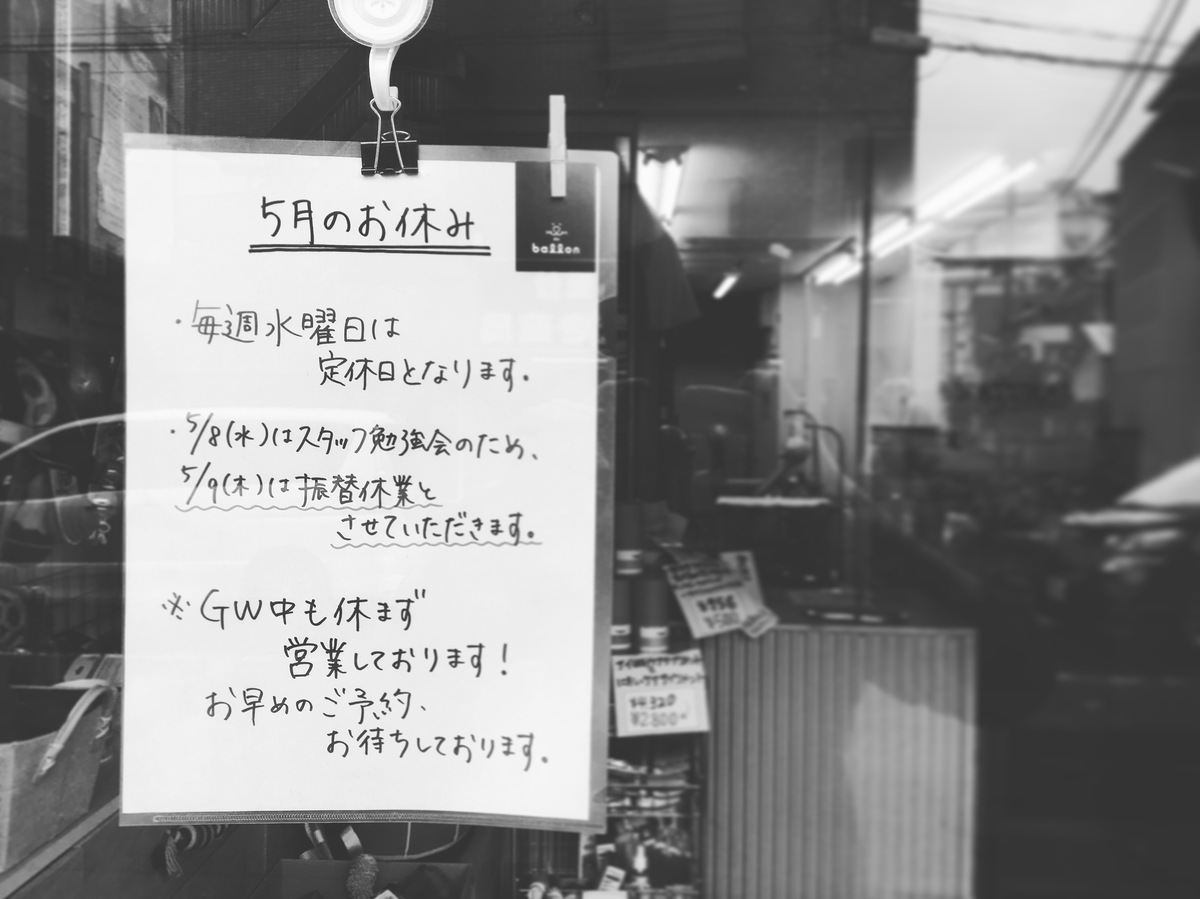 5月のお休み
ballon
・毎週水曜日は
定休日となります。
・5/8(水)はスタッフ勉強会のため、
5/9(木)は振替休業と
させていただきます。
※GW中も休まず
営業しております!
お早めのご予約、
お待ちしております。
¥4320
¥2800